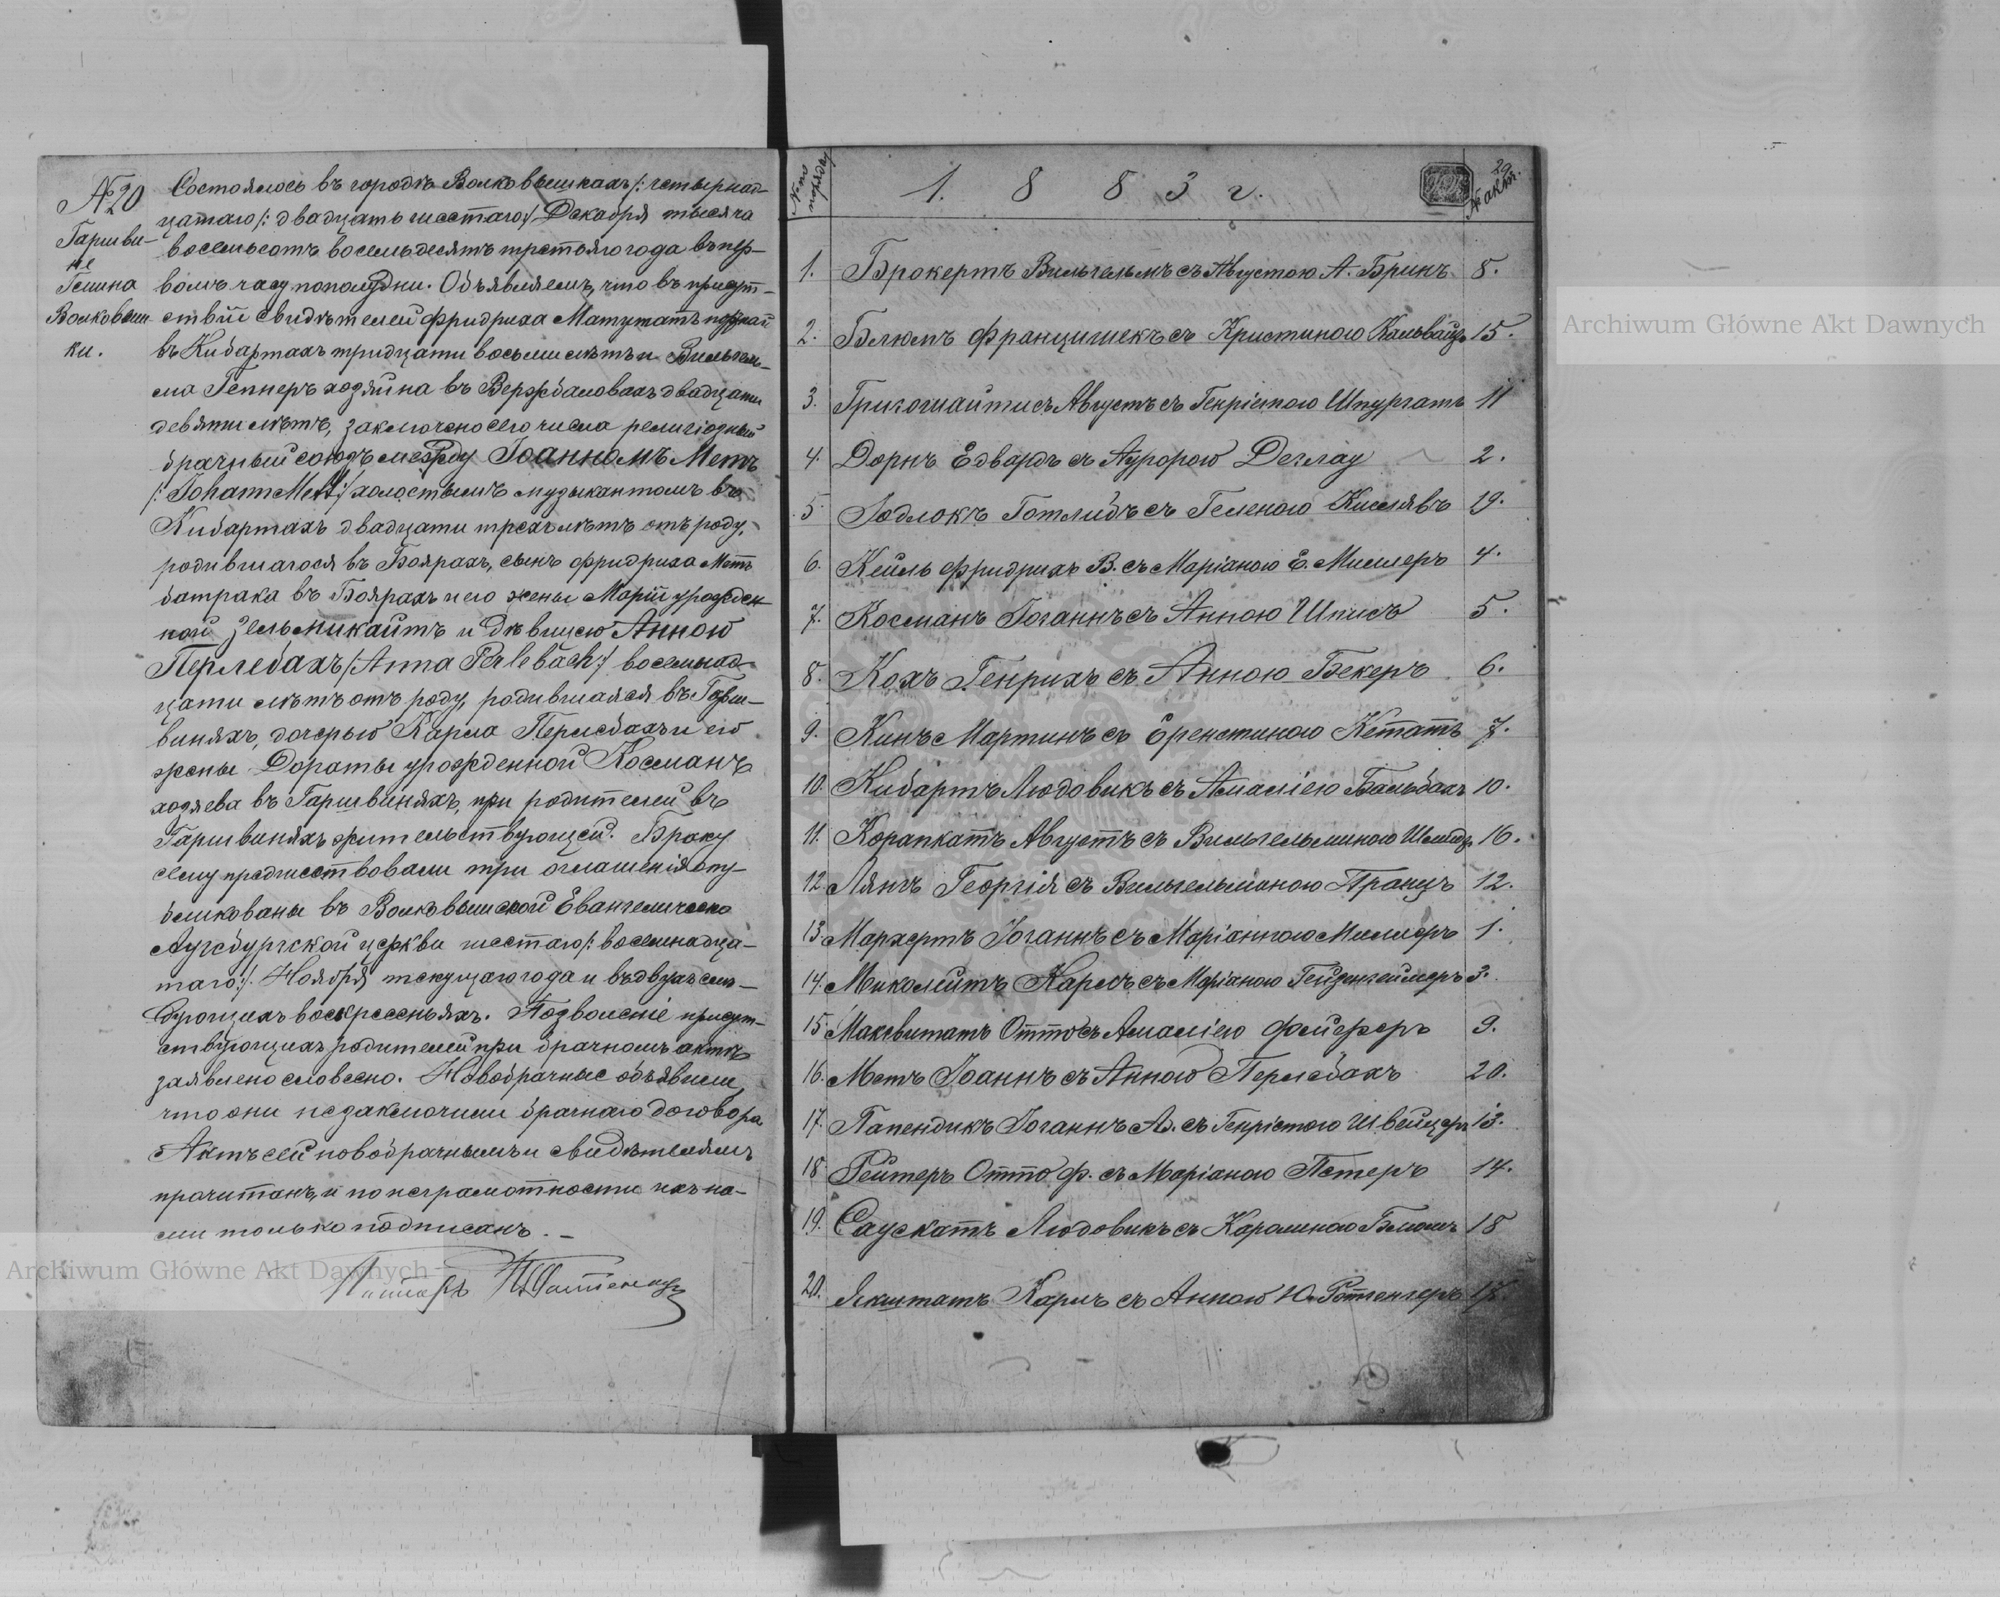 №20
Гаршви-
не
Гмина
Волковыш-
ки.
Состоялось въ городѣ Волковышкахъ /: четырнад-
цатаго /: двадцать шестаго :/ Декабря тысяча
восемьсотъ восемьдесятъ третьяго года въ пер-
вомъ часу пополудни. Объявляемъ, что въ присут-
ствіи свидѣтелей Фридриха Матутатъ
въ Кибартахъ тридцати восьми лѣтъ и Вильгель-
ма Геннеръ хозяина въ Вержболовахъ двадцати
девяти лѣтъ, заключено сего числа религіозный
брачный союзъ между Іоанномъ Метъ
/: Johann Mett :/ холостымъ музыкантомъ въ
Кибартахъ двадцати трехъ лѣтъ отъ роду,
родившагося въ Боярахъ, сынъ Фридриха Метъ
батрака въ Боярахъ и его жены Маріи урожден-
ной Зельмикайтъ и дѣвицею Анною
Перлебахъ /: Anna Perlebach :/ восемнад-
цати лѣтъ отъ роду, родившаяся въ Гарш-
виняхъ, дочерью Карла Перлебахъ и его
жены Дораты урожденной Косманъ
хозяева въ Гаршвиняхъ, при родителей въ
Гаршвиняхъ жительствующей. Браку
сему предшествовали три оглашенія опу-
бликованы въ Волковышской Евангелическо
Аугсбургской церкви шестаго /: восемнадца-
таго :/ Ноября текущаго года и въ двухъ слѣ-
дующихъ воскресеньяхъ. Позволеніе присут-
ствующихъ родителей при брачномъ актѣ
заявлено словесно. Новобрачные объявили,
что они не заключили брачнаго договора.
Актъ сей новобрачнымъ и свидѣтелямъ
прочитанъ, и по неграмотности ихъ на-
ми только подписанъ. –
Пасторъ
№ по порядку
1 8 8 3 г.
20
№ акт.
1. Брокертъ Вильгельмъ съ Августою А. Бринъ 8.
2. Блюмъ Францишекъ съ Кристиною Кальвайцъ 15.
3. Грикошайтисъ Августъ съ Генріетою Шпургатъ 11
4. Дорнъ Едвардъ съ Ауророю Деглау 2.
5. Зодлокъ Готлибъ съ Геленою Кисслявъ 19.
6. Кейль Фридрихъ В. съ Маріаною Е. Миллеръ 4.
7. Косманъ Іоганнъ съ Анною Шписъ 5.
8. Кохъ Генрихъ съ Анною Бекеръ 6.
9. Кинъ Мартинъ съ Еренстиною Кетатъ 7.
10. Кибартъ Людовикъ съ Амаліею Бальбахъ 10.
11. Корапкатъ Августъ съ Вильгельминою Шмидъ 16.
12. Лянъ Георгія съ Вильгельминою Пранцъ 12.
13. Мархертъ Іоганнъ съ Маріанною Миллеръ 1.
14. Миколейтъ Карлъ съ Маріаною Гейзенгеймеръ 3.
15. Маквитатъ Оттосъ Амаліею Флейзеръ 9.
16. Метъ Іоаннъ съ Анною Перлебахъ 20.
17. Папендикъ Іоганнъ А. съ Генріетою Швейцеръ 13.
18. Рейтеръ Отто Ф. съ Маріаною Петеръ 14.
19. Саускатъ Людовикъ съ Каролиною Блюмъ 18
20. Якштатъ Карлъ съ Анною Ю. Ротенгеръ 17.
Archiwum Główne Akt Dawnych
Archiwum Główne Akt Dawnych